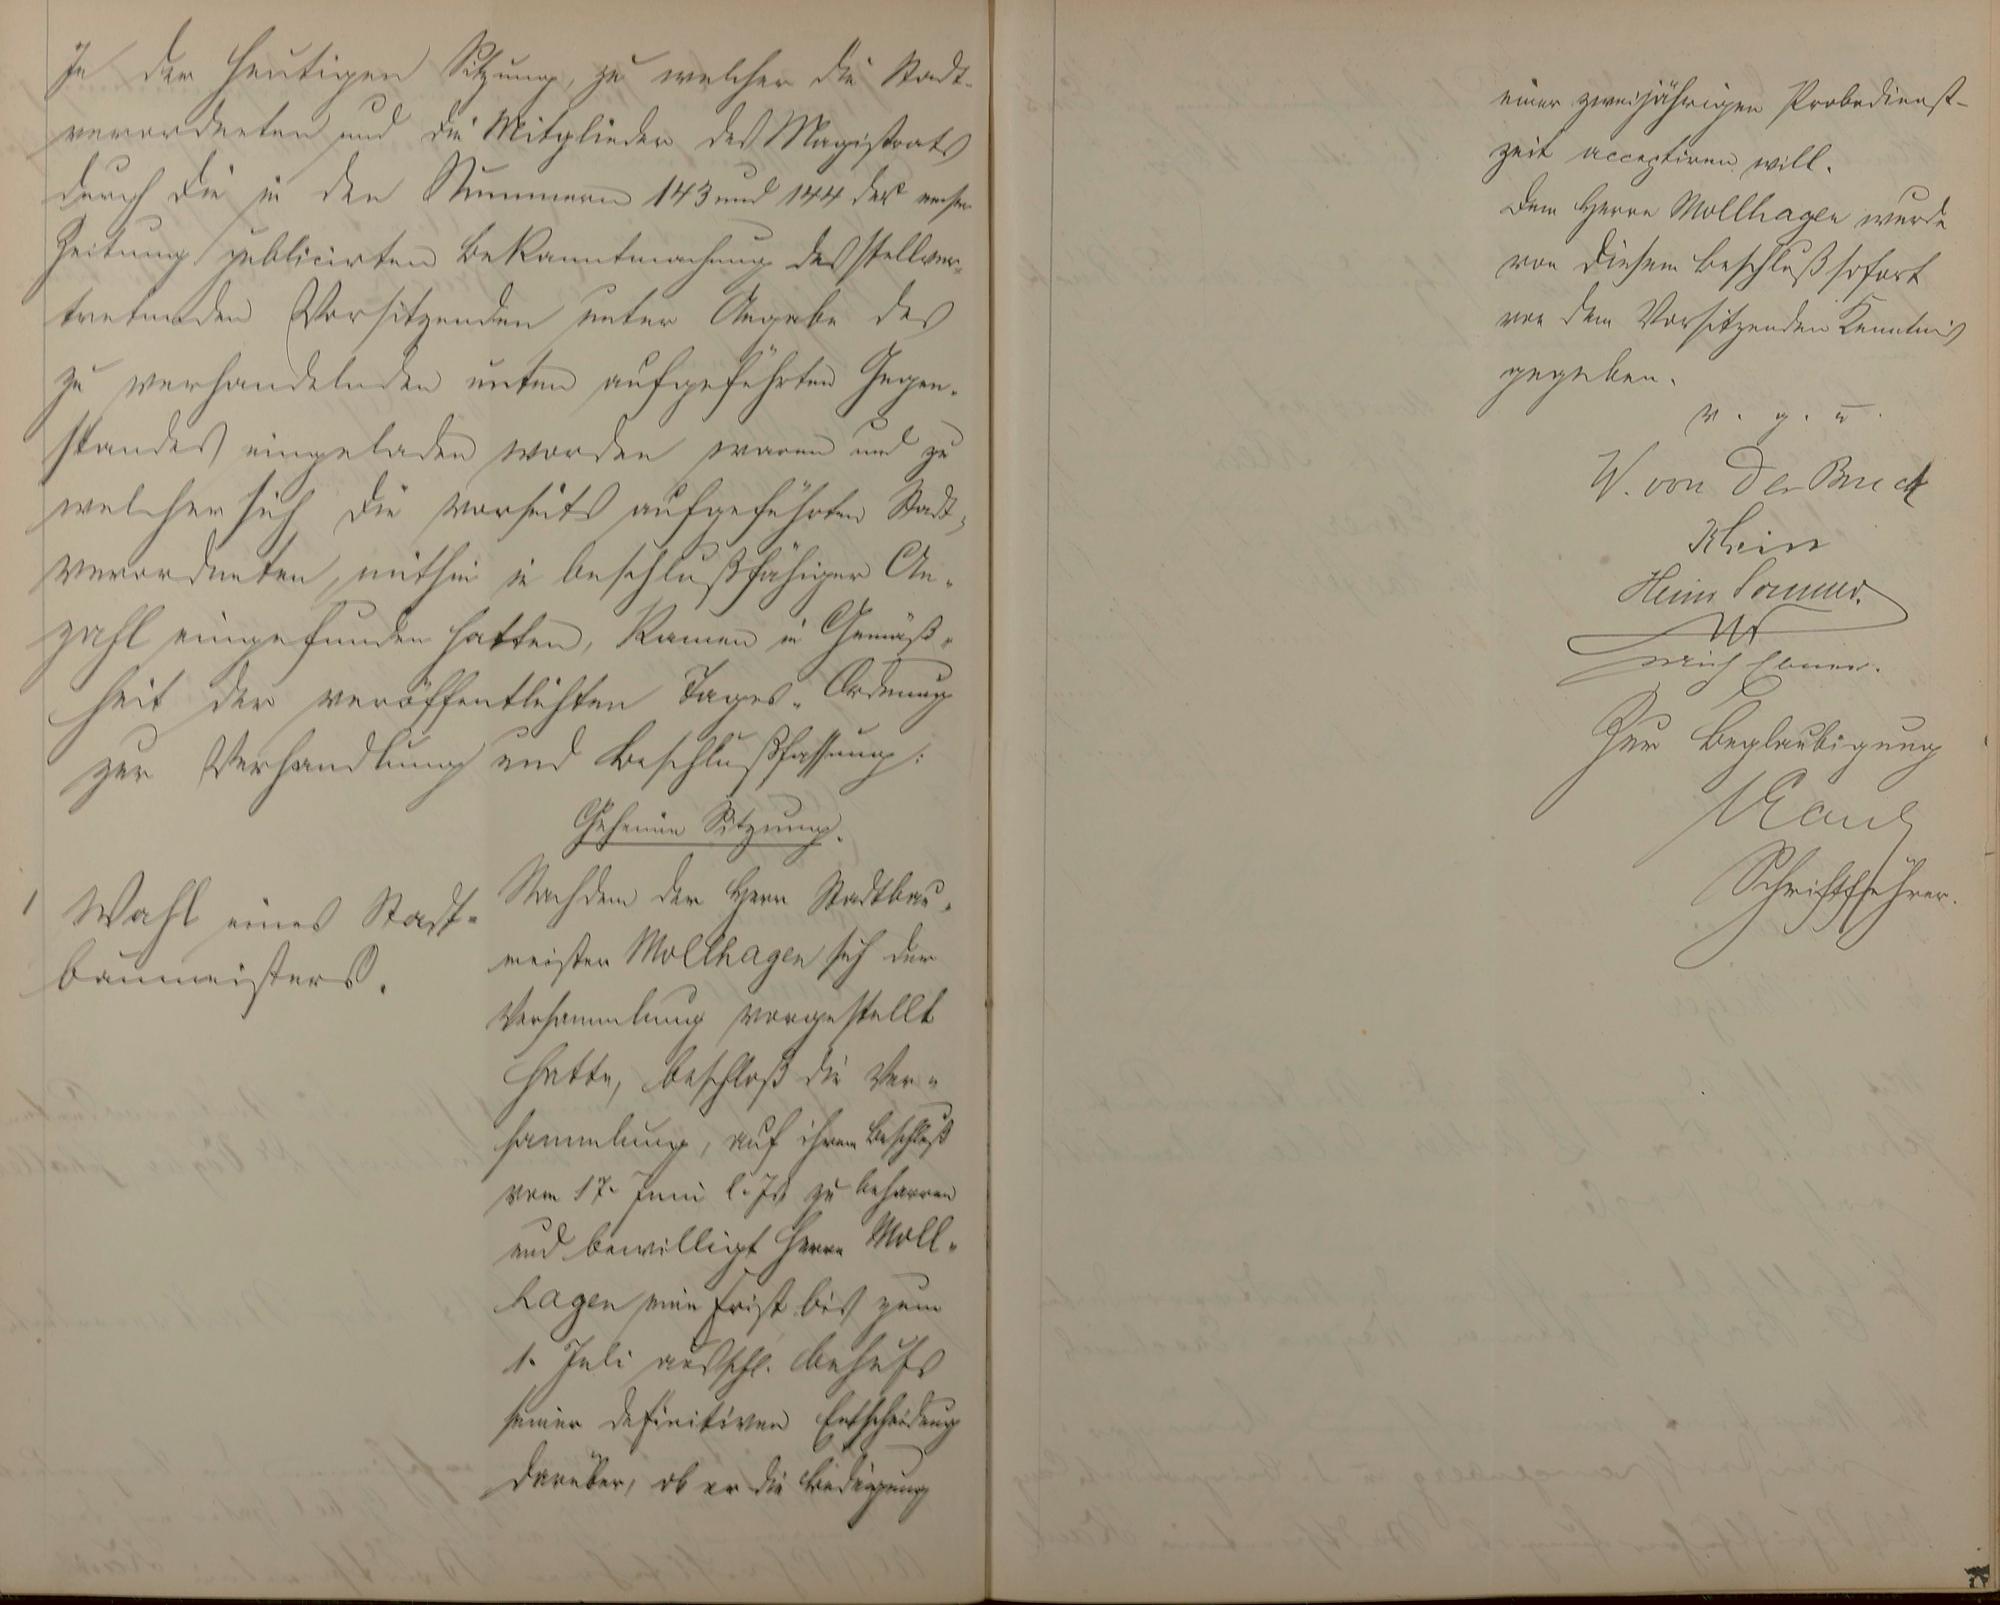 In der heutigen Sitzung, zu welcher die Stadt-
verordneten und die Mitglieder des Magistrats
durch die in den Nummern 143 und 144 der
Zeitung publicirten Bekanntmachung des stellver-
tretenden Vorsitzenden unter Angabe des
zu verhandelnden unten aufgeführten Gegen-
standes eingeladen worden waren und zu
welcher sich die vorseits aufgeführten Stadt-
verordneten, mithin in beschlußfähiger An-
zahl eingefunden hatten, kamen in Gemäß-
heit der veröffentlichten Tages-Ordnung
zur Verhandlung und Beschlußfassung:
Geheime Sitzung.
1 Wahl eines Stadt-
baumeisters.
Nachdem der Herr Stadtbau-
meister Mollhagen sich der
Versammlung vorgestellt
hatte, beschloß die Ver-
sammlung, auf ihrem Beschluß
vom 17. Juni l. Js zu beharren
und bewilligt Herrn Moll-
hagen eine Frist bis zum
1. Juli ausschl. behufs
seiner definitiven Entscheidung
darüber, ob er die Bedingung
einer zweijährigen Probedienst-
zeit acceptiren will.
Dem Herrn Mollhagen wurde
von diesem Beschluß sofort
von dem Vorsitzenden Kenntnis
gegeben.
v. g. u.
W. von der Bruck
Klein
Heinr. Sommer.
Zur Beglaubigung
Schriftführer.